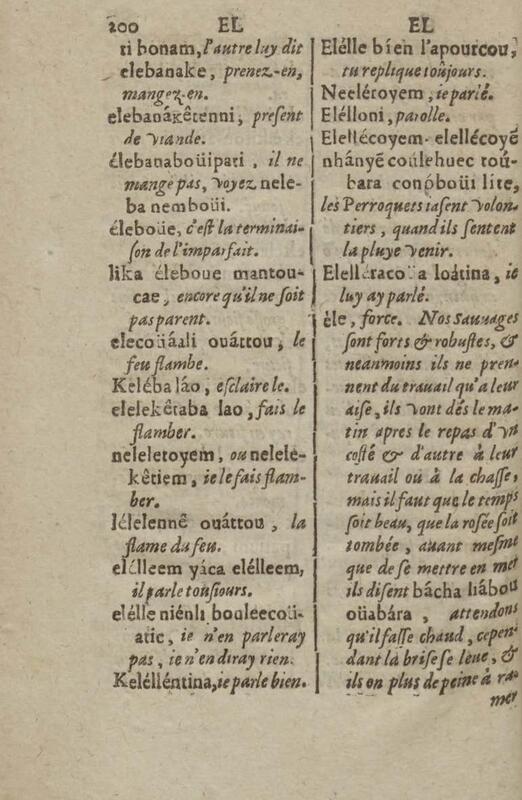 200 EL EL
ti bonam, l'autre luy dit
elebanake, prenez-en,
mangez-en.
elebanákêtenni, present
de viande.
élebanaboüipati, il ne
mange pas, voyez nele-
ba nemboüi.
éleboüe, c'est la terminai-
son de l'imparfait.
lika éleboue mantou-
cae, encore qu'il ne soit
pas parent.
elecoüáali ouáttou, le
feu flambe.
Keléba láo, esclaire le.
elelekêtaba lao, fais le
flamber.
neleletoyem, ou nelele-
kêtiem, ie le fais flam-
ber.
lélelennê ouáttou, la
flame du feu.
elélleem yáca elélleem,
il parle tousiours.
elélle niénli bouleecoü-
atic, ie n'en parleray
pas, ie n'en diray rien.
Kelélléntina, ie parle bien.
Elélle bien l'apourcou,
tu replique toûjours.
Neelétoyem, ie parlé.
Elélloni, parolle.
Elellécoyem. elellécoyẽ
nhányẽ coúlehuec toú-
bara conọboüi lite,
les Perroquets iasent volon-
tiers, quand ils sentent
la pluye venir.
Elelléracoüa loátina, ie
luy ay parlé.
éle, force. Nos Sauuages
sont forts & robustes, &
neanmoins ils ne pren-
nent du trauail qu'a leur
aise, ils vont dés le ma-
tin apres le repas d'vn
costé & d'autre à leur
trauail où à la chasse,
mais il faut que le temps
soit beau, que la rosée soit
tombée, auant mesme
que de se mettre en mer
ils disent bácha liábou
oüabára, attendons
qu'il fasse chaud, cepen
dant la brise se leue, &
ils on plus de peine à ra-
mer